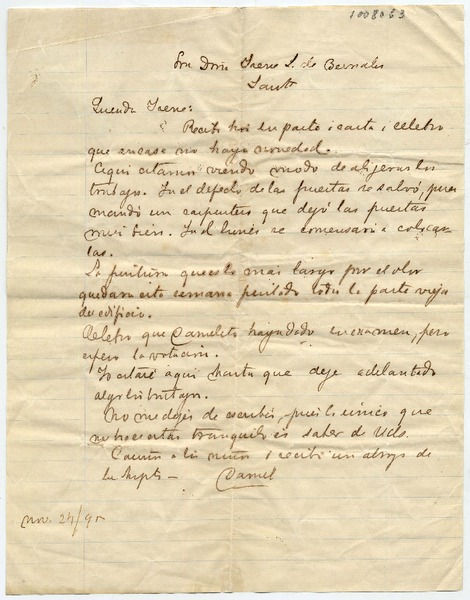 1008063
Sra Doña Irene L. de Bernales
Santo
Querida Irene:
Recibí hoi tu parte i carta i celebro
que en casa no haya novedad.
Aqui estamos viendo modo de alijerar los
trabajos. Lo del defecto de las puertas se salvó, pues
mandó un carpintero que dejó las puertas
mui bien. I el lunes se comensara a colocar-
las.
La pintura que es lo mas largo por el olor
quedara esta semana pintado toda la parte vieja
de edificio.
Celebro que Camelito haya dado su examen, pero
espero la votacion.
Yo estaré aqui hasta que deje adelantado
algo los trabajos.
No me dejes de escribir, pues lo único que
me hace estar tranquilo es saber de Uds.
Cariños a los niños i recibe un abrazo de
tu
Daniel
nov. 24/95